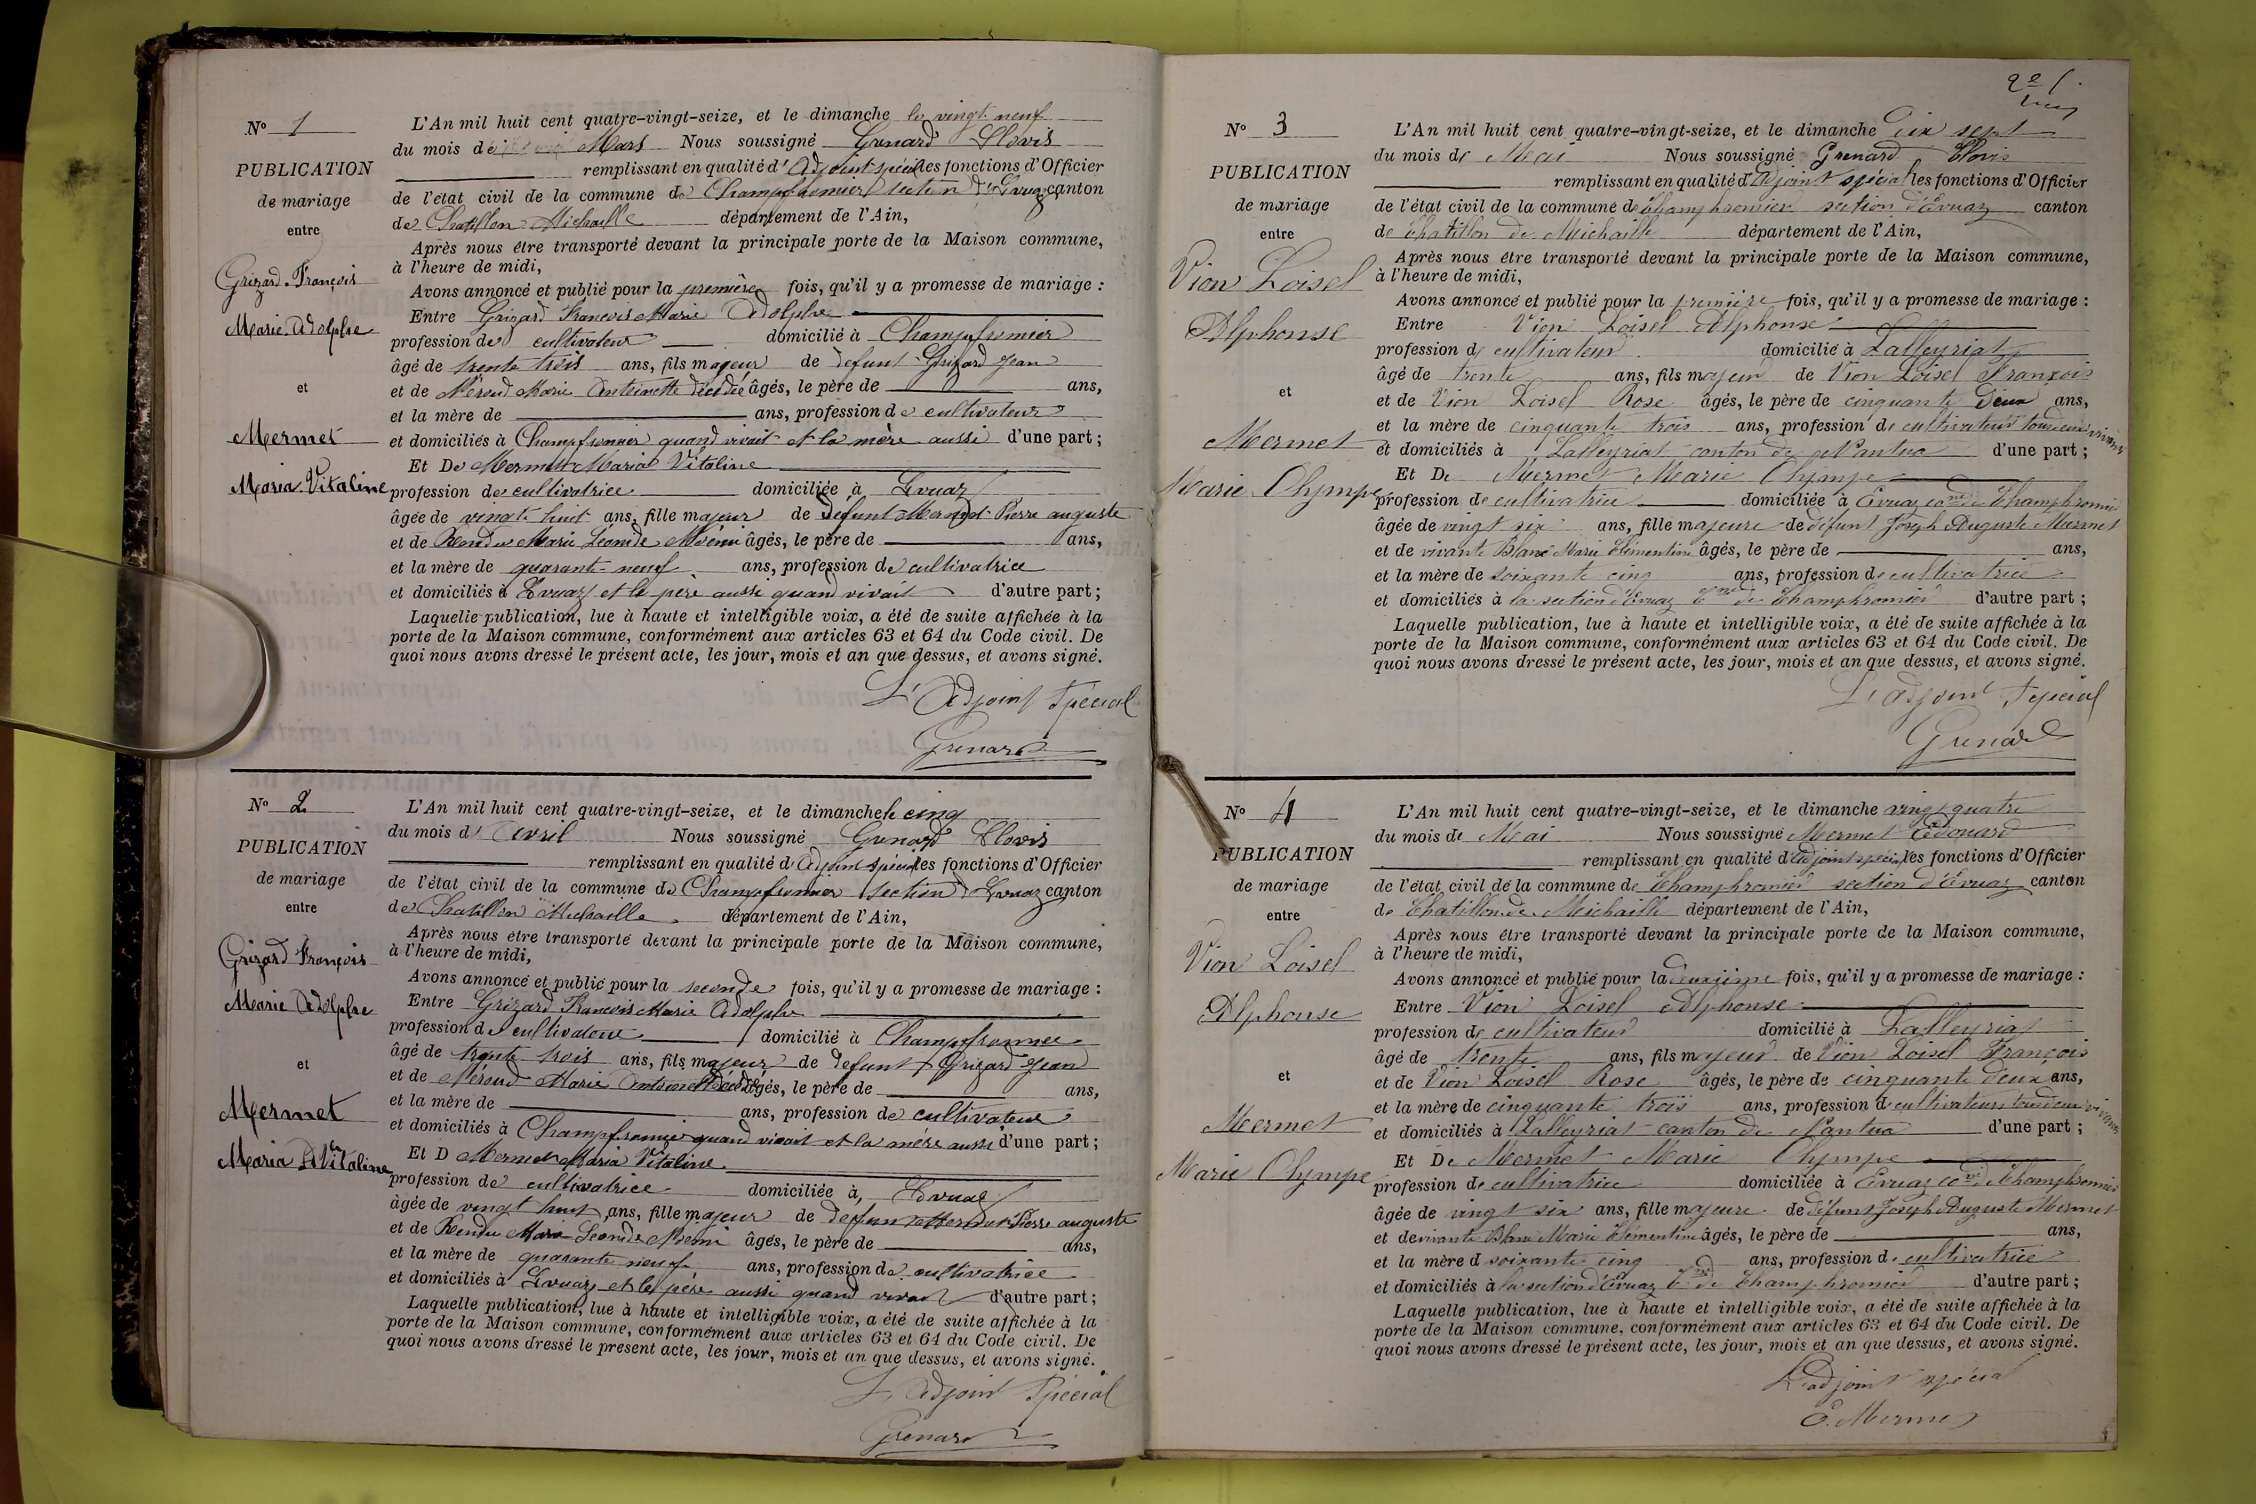 N° 1
PUBLICATION
de mariage
entre
Grizard François
Marie Adolphe
et
Mermet
Maria Vitaline
L'An mil huit cent quatre-vingt-seize, et le dimanche le vingt neuf
du mois de Mars Nous soussigné Grenard Clovis
remplissant en qualité d'Adjoint spécial les fonctions d'Officier
de l'état civil de la commune de Champfromier section d'Evuaz canton
de Chatillon Michaille département de l'Ain,
Après nous être transporté devant la principale porte de la Maison commune,
à l'heure de midi,
Avons annoncé et publié pour la première fois, qu'il y a promesse de mariage :
Entre Grizard Francois Marie Adolphe
profession de cultivateur domicilié à Champfromier
âgé de trente trois ans, fils majeur de defunt Grizard Jean
et de Méroud Marie Antoinette décédée âgés, le père de ans,
et la mère de ans, profession de cultivateur
et domiciliés à Champfromier quand vivait et la mère aussi d'une part ;
Et De Mermet Maria Vitaline
profession de cultivatrice domiciliée à Evuaz
âgée de vingt huit ans, fille majeur de defunt Mermet Pierre auguste
et de Rendu Marie Léonide âgés, le père de ans,
et la mère de quarante-neuf ans, profession de cultivatrice
et domiciliés à Evuaz et le père aussi quand vivait d'autre part ;
Laquelle publication, lue à haute et intelligible voix, a été de suite affichée à la
porte de la Maison commune, conformément aux articles 63 et 64 du Code civil. De
quoi nous avons dressé le présent acte, les jour, mois et an que dessus, et avons signé.
L'Adjoint Spécial
Grenard
N° 2
PUBLICATION
de mariage
entre
Grizard François
Marie Adolphe
et
Mermet
Maria Vitaline
L'An mil huit cent quatre-vingt-seize, et le dimanche le cinq
du mois d'Avril Nous soussigné Grenard Clovis
remplissant en qualité d'Adjoint spécial les fonctions d'Officier
de l'état civil de la commune de Champfromier section d'Evuaz canton
de Chatillon Michaille département de l'Ain,
Après nous être transporté devant la principale porte de la Maison commune,
à l'heure de midi,
Avons annoncé et publié pour la seconde fois, qu'il y a promesse de mariage :
Entre Grizard Francois Marie Adolphe
profession de cultivateur domicilié à Champfromier
âgé de trente trois ans, fils majeur de defunt Grizard Jean
et de Méroud Marie Antoinette décédée âgés, le père de ans,
et la mère de ans, profession de cultivateur
et domiciliés à Champfromier quand vivait et la mère aussi d'une part ;
Et D Mermet Maria Vitaline
profession de cultivatrice domiciliée à Evuaz
âgée de vingt huit ans, fille majeur de defunt Mermet Pierre auguste
et de Rendu Marie Leonide âgés, le père de ans,
et la mère de quarante neuf ans, profession de cultivatrice
et domiciliés à Evuaz et le père aussi quand vivait d'autre part ;
Laquelle publication, lue à haute et intelligible voix, a été de suite affichée à la
porte de la Maison commune, conformément aux articles 63 et 64 du Code civil. De
quoi nous avons dressé le présent acte, les jour, mois et an que dessus, et avons signé.
L'Adjoint Spécial
Grenard
2e f.
N° 3
PUBLICATION
de mariage
entre
Vion Loisel
Alphonse
et
Mermet
Marie Olympe
L'An mil huit cent quatre-vingt-seize, et le dimanche dix sept
du mois de Mai Nous soussigné Grenard Clovis
remplissant en qualité d'Adjoint spécial les fonctions d'Officier
de l'état civil de la commune de Champfromier section d'Evuaz canton
de Chatillon de Michaille département de l'Ain,
Après nous être transporté devant la principale porte de la Maison commune,
à l'heure de midi,
Avons annoncé et publié pour la première fois, qu'il y a promesse de mariage :
Entre Vion Loisel Alphonse
profession de cultivateur domicilié à Lalleyriat
âgé de trente ans, fils majeur de Vion Loisel François
et de Vion Loisel Rose âgés, le père de cinquante deux ans,
et la mère de cinquante trois ans, profession de cultivateurs tous deux vivants
et domiciliés à Lalleyriat canton de Nantua d'une part ;
Et De Mermet Marie Olympe
profession de cultivatrice domiciliée à Evuaz cne de Champfromier
âgée de vingt six ans, fille majeure de défunt Joseph Auguste Mermet
et de vivante Blanc Marie Clémentine âgés, le père de ans,
et la mère de soixante cinq ans, profession de cultivatrice
et domiciliés à la section d'Evuaz Cne de Champfromier d'autre part ;
Laquelle publication, lue à haute et intelligible voix, a été de suite affichée à la
porte de la Maison commune, conformément aux articles 63 et 64 du Code civil. De
quoi nous avons dressé le présent acte, les jour, mois et an que dessus, et avons signé.
L'adjoint Spécial
Grenard
N° 4
PUBLICATION
de mariage
entre
Vion Loisel
Alphonse
et
Mermet
Marie Olympe
L'An mil huit cent quatre-vingt-seize, et le dimanche vingt quatre
du mois de Mai Nous soussigné Mermet Edouard
remplissant en qualité d'adjoint spécial les fonctions d'Officier
de l'état civil de la commune de Champfromier section d'Evuaz canton
de Chatillon de Michaille département de l'Ain,
Après nous être transporté devant la principale porte de la Maison commune,
à l'heure de midi,
Avons annoncé et publié pour la deuxième fois, qu'il y a promesse de mariage :
Entre Vion Loisel Alphonse
profession de cultivateur domicilié à Lalleyriat
âgé de trente ans, fils majeur de Vion Loisel François
et de Vion Loisel Rose âgés, le père de cinquante deux ans,
et la mère de cinquante trois ans, profession de cultivateurs tous deux vivants
et domiciliés à Lalleyriat canton de Nantua d'une part ;
Et De Mermet Marie Olympe
profession de cultivatrice domiciliée à Evuaz cne de Champfromier
âgée de vingt six ans, fille majeure de défunt Joseph Auguste Mermet
et de vivante Blanc Marie Clémentine âgés, le père de ans,
et la mère d soixante cinq ans, profession de cultivatrice
et domiciliés à la section d'Evuaz Cne de Champfromier d'autre part ;
Laquelle publication, lue à haute et intelligible voix, a été de suite affichée à la
porte de la Maison commune, conformément aux articles 63 et 64 du Code civil. De
quoi nous avons dressé le présent acte, les jour, mois et an que dessus, et avons signé.
L'adjoint spécial
E. Mermet